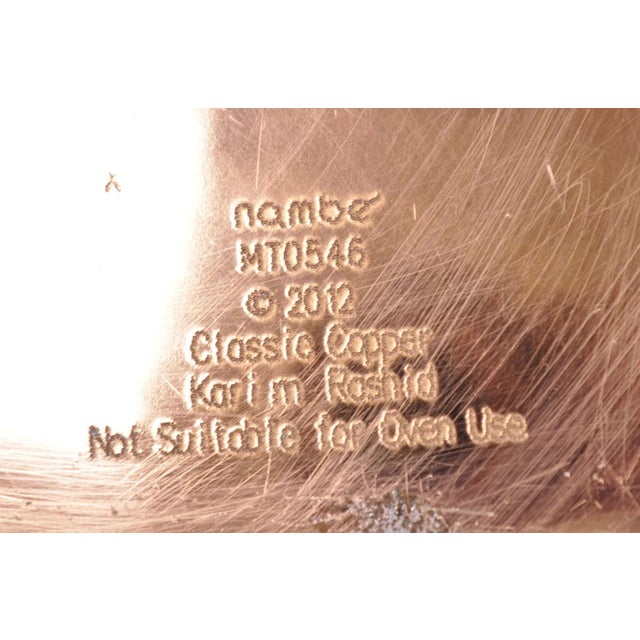 nambé
MT0546
© 2012
Classic Copper
Karim Rashid
Not Suitable for Oven Use